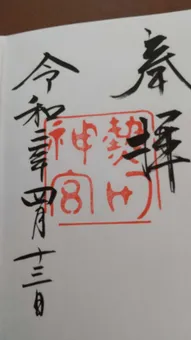 奉拝
熱田
神宮
令和二年四月十三日